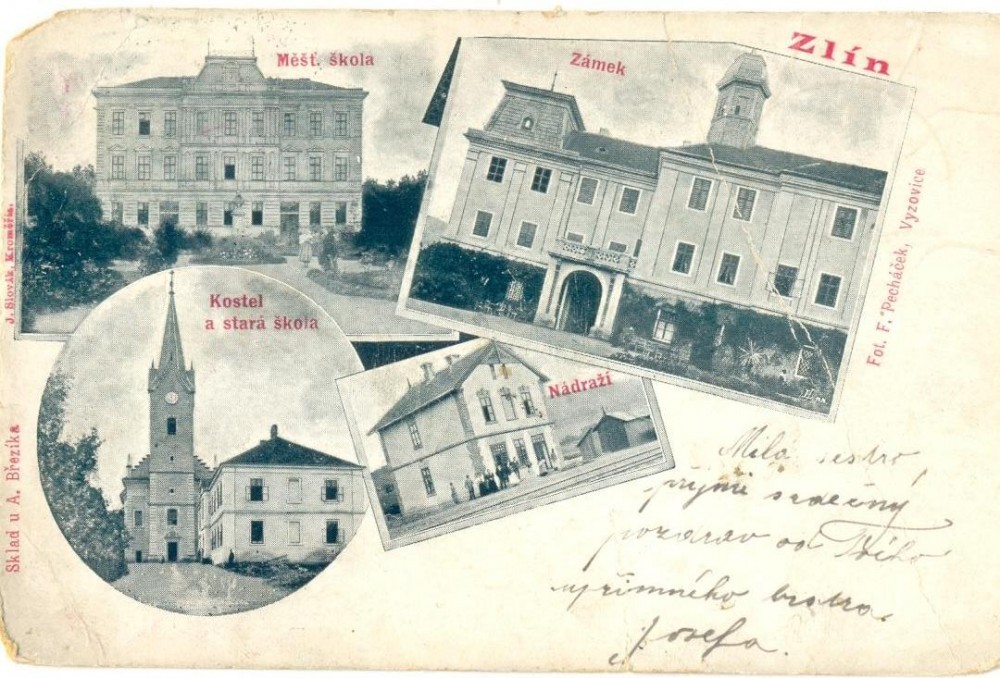 Zlín
Měšť. škola
Zámek
Kostel
a stará škola
Nádraží
J. Slovák, Kroměříž.
Sklad u A. Březíka
Fot. F. Pecháček, Vyzovice
Milá sestro,
přijmi srdečný
pozdrav od Tvého
upřímného bratra
Josefa.